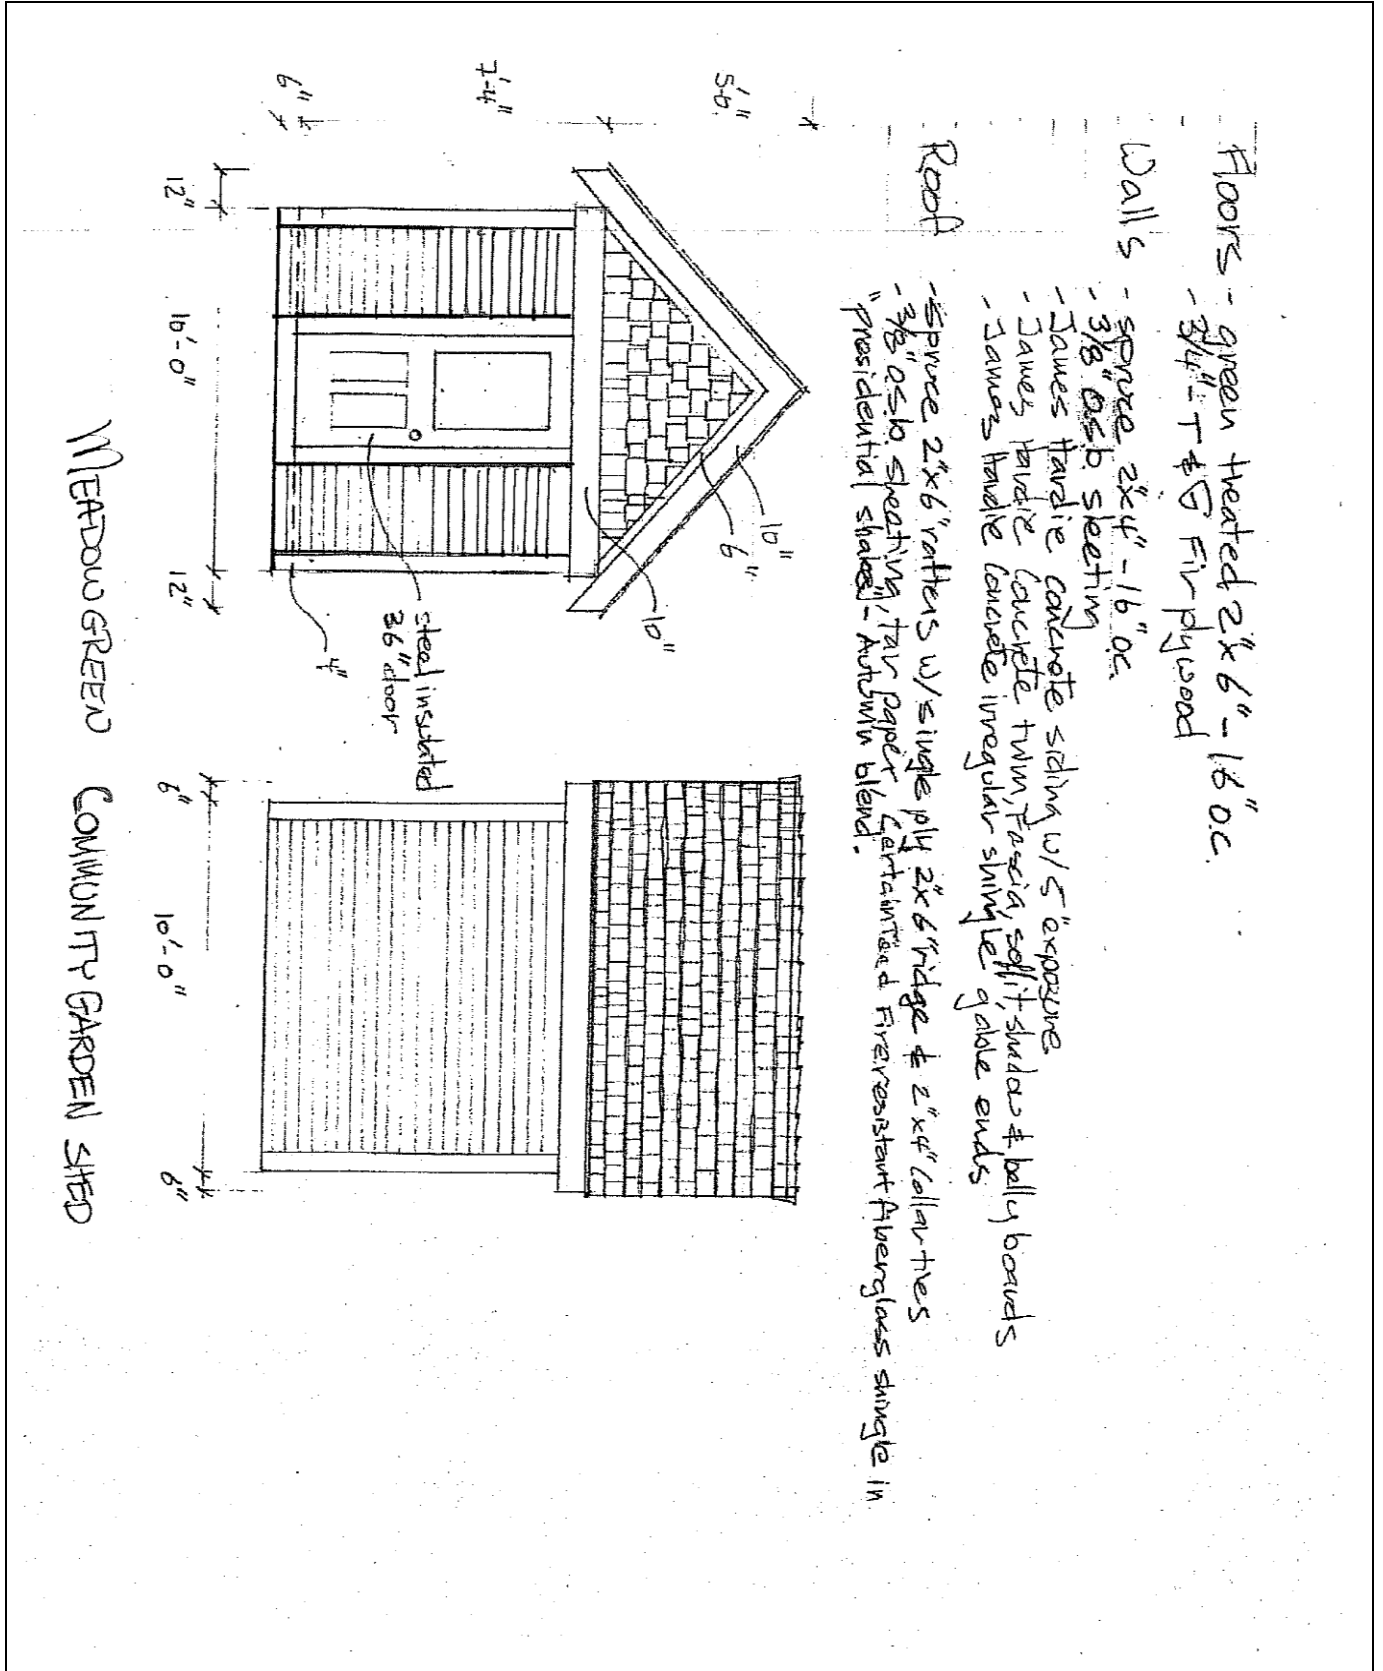 Floors - green treated 2"x 6" - 16" o.c.
- 3/4" - T & G Fir plywood
Walls - spruce 2"x4" - 16" o.c.
- 3/8" o.s.b. sheeting
- James Hardie concrete siding w/ 5" exposure
- James Hardie concrete trim, Fascia, soffit, shadow & belly boards
- James Hardie concrete irregular shingle gable ends
Roof - spruce 2"x6" rafters w/ single ply 2"x6" ridge & 2"x4" collar ties
- 3/8" o.s.b. sheating, tar paper, CertainTeed Fire resistant fiberglass shingle in
"presidential shake" - Autumn blend.
5'-6"
7'-4"
6"
10"
6"
10"
4"
steel insulated
36" door
12"
10'-0"
12"
6"
10'-0"
6"
MEADOWGREEN COMMUNITY GARDEN SHED